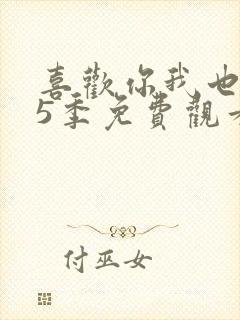 喜歡你我也
5季免費觀
付巫女